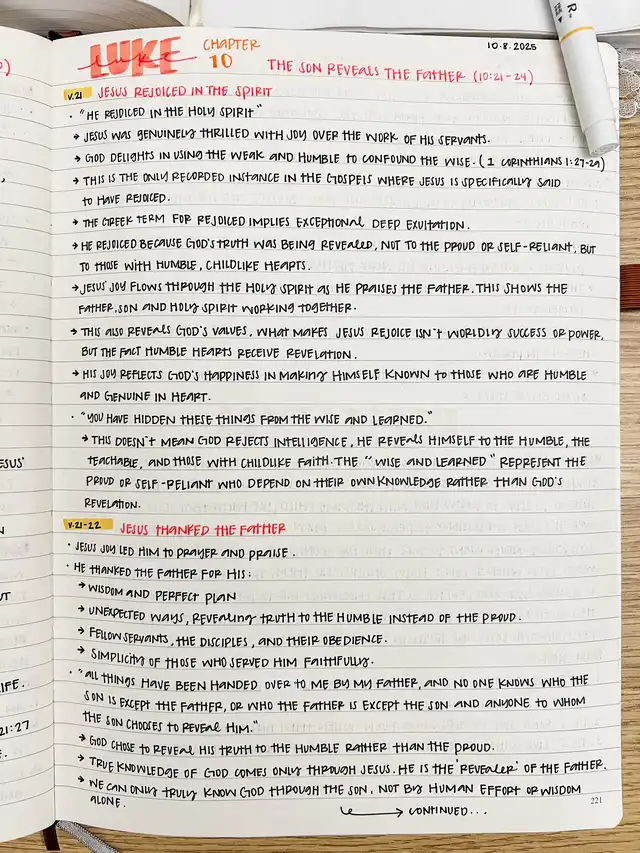 LUKE CHAPTER 10
10.8.2025
THE SON REVEALS THE FATHER (10:21-24)
V.21 JESUS REJOICED IN THE SPIRIT
• "HE REJOICED IN THE HOLY SPIRIT"
→ JESUS WAS GENUINELY THRILLED WITH JOY OVER THE WORK OF HIS SERVANTS.
→ GOD DELIGHTS IN USING THE WEAK AND HUMBLE TO CONFOUND THE WISE. (1 CORINTHIANS 1:27-29)
→ THIS IS THE ONLY RECORDED INSTANCE IN THE GOSPELS WHERE JESUS IS SPECIFICALLY SAID
TO HAVE REJOICED.
→ THE GREEK TERM FOR REJOICED IMPLIES EXCEPTIONAL DEEP EXULTATION.
→ HE REJOICED BECAUSE GOD'S TRUTH WAS BEING REVEALED, NOT TO THE PROUD OR SELF-RELIANT, BUT
TO THOSE WITH HUMBLE, CHILDLIKE HEARTS.
→ JESUS' JOY FLOWS THROUGH THE HOLY SPIRIT AS HE PRAISES THE FATHER. THIS SHOWS THE
FATHER, SON AND HOLY SPIRIT WORKING TOGETHER.
→ THIS ALSO REVEALS GOD'S VALUES, WHAT MAKES JESUS REJOICE ISN'T WORLDLY SUCCESS OR POWER,
BUT THE FACT HUMBLE HEARTS RECEIVE REVELATION.
→ HIS JOY REFLECTS GOD'S HAPPINESS IN MAKING HIMSELF KNOWN TO THOSE WHO ARE HUMBLE
AND GENUINE IN HEART.
• "YOU HAVE HIDDEN THESE THINGS FROM THE WISE AND LEARNED."
→ THIS DOESN'T MEAN GOD REJECTS INTELLIGENCE, HE REVEALS HIMSELF TO THE HUMBLE, THE
TEACHABLE, AND THOSE WITH CHILDLIKE FAITH. THE "WISE AND LEARNED" REPRESENT THE
PROUD OR SELF-RELIANT WHO DEPEND ON THEIR OWN KNOWLEDGE RATHER THAN GOD'S
REVELATION.
V.21-22 JESUS THANKED THE FATHER
• JESUS JOY LED HIM TO PRAYER AND PRAISE.
• HE THANKED THE FATHER FOR HIS:
→ WISDOM AND PERFECT PLAN
→ UNEXPECTED WAYS, REVEALING TRUTH TO THE HUMBLE INSTEAD OF THE PROUD.
→ FELLOW SERVANTS, THE DISCIPLES, AND THEIR OBEDIENCE.
→ SIMPLICITY OF THOSE WHO SERVED HIM FAITHFULLY.
• "ALL THINGS HAVE BEEN HANDED OVER TO ME BY MY FATHER, AND NO ONE KNOWS WHO THE
SON IS EXCEPT THE FATHER, OR WHO THE FATHER IS EXCEPT THE SON AND ANYONE TO WHOM
THE SON CHOOSES TO REVEAL HIM."
→ GOD CHOSE TO REVEAL HIS TRUTH TO THE HUMBLE RATHER THAN THE PROUD.
→ TRUE KNOWLEDGE OF GOD COMES ONLY THROUGH JESUS. HE IS THE 'REVEALER' OF THE FATHER.
→ WE CAN ONLY TRULY KNOW GOD THROUGH THE SON, NOT BY HUMAN EFFORT OR WISDOM
ALONE.
CONTINUED...
221